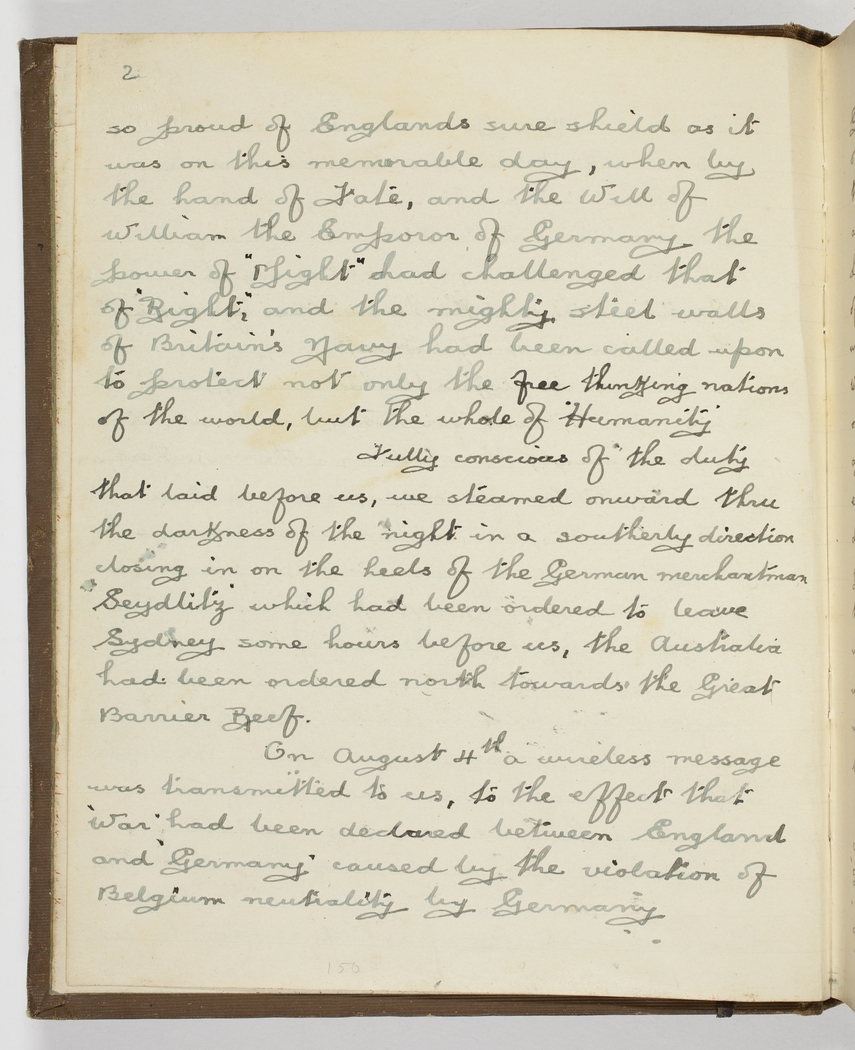 2
so proud of Englands sure shield as it
was on this memorable day, when by
the hand of Fate, and the Will of
William the Emporor of Germany the
power of "Might" had challenged that
of "Right", and the mighty steel walls
of Britain's Navy had been called upon
to protect not only the free thinking nations
of the world, but the whole of 'Humanity'
Fully conscious of the duty
that laid before us, we steamed onward thru
the darkness of the night in a southerly direction
closing in on the heels of the German merchantman
'Seydlitz' which had been ordered to leave
Sydney some hours before us, the Australia
had been ordered north towards the Great
Barrier Reef.
On August 4th a wireless message
was transmitted to us, to the effect that
'War' had been declared between England
and 'Germany' caused by the violation of
Belgium neutrality by Germany
150